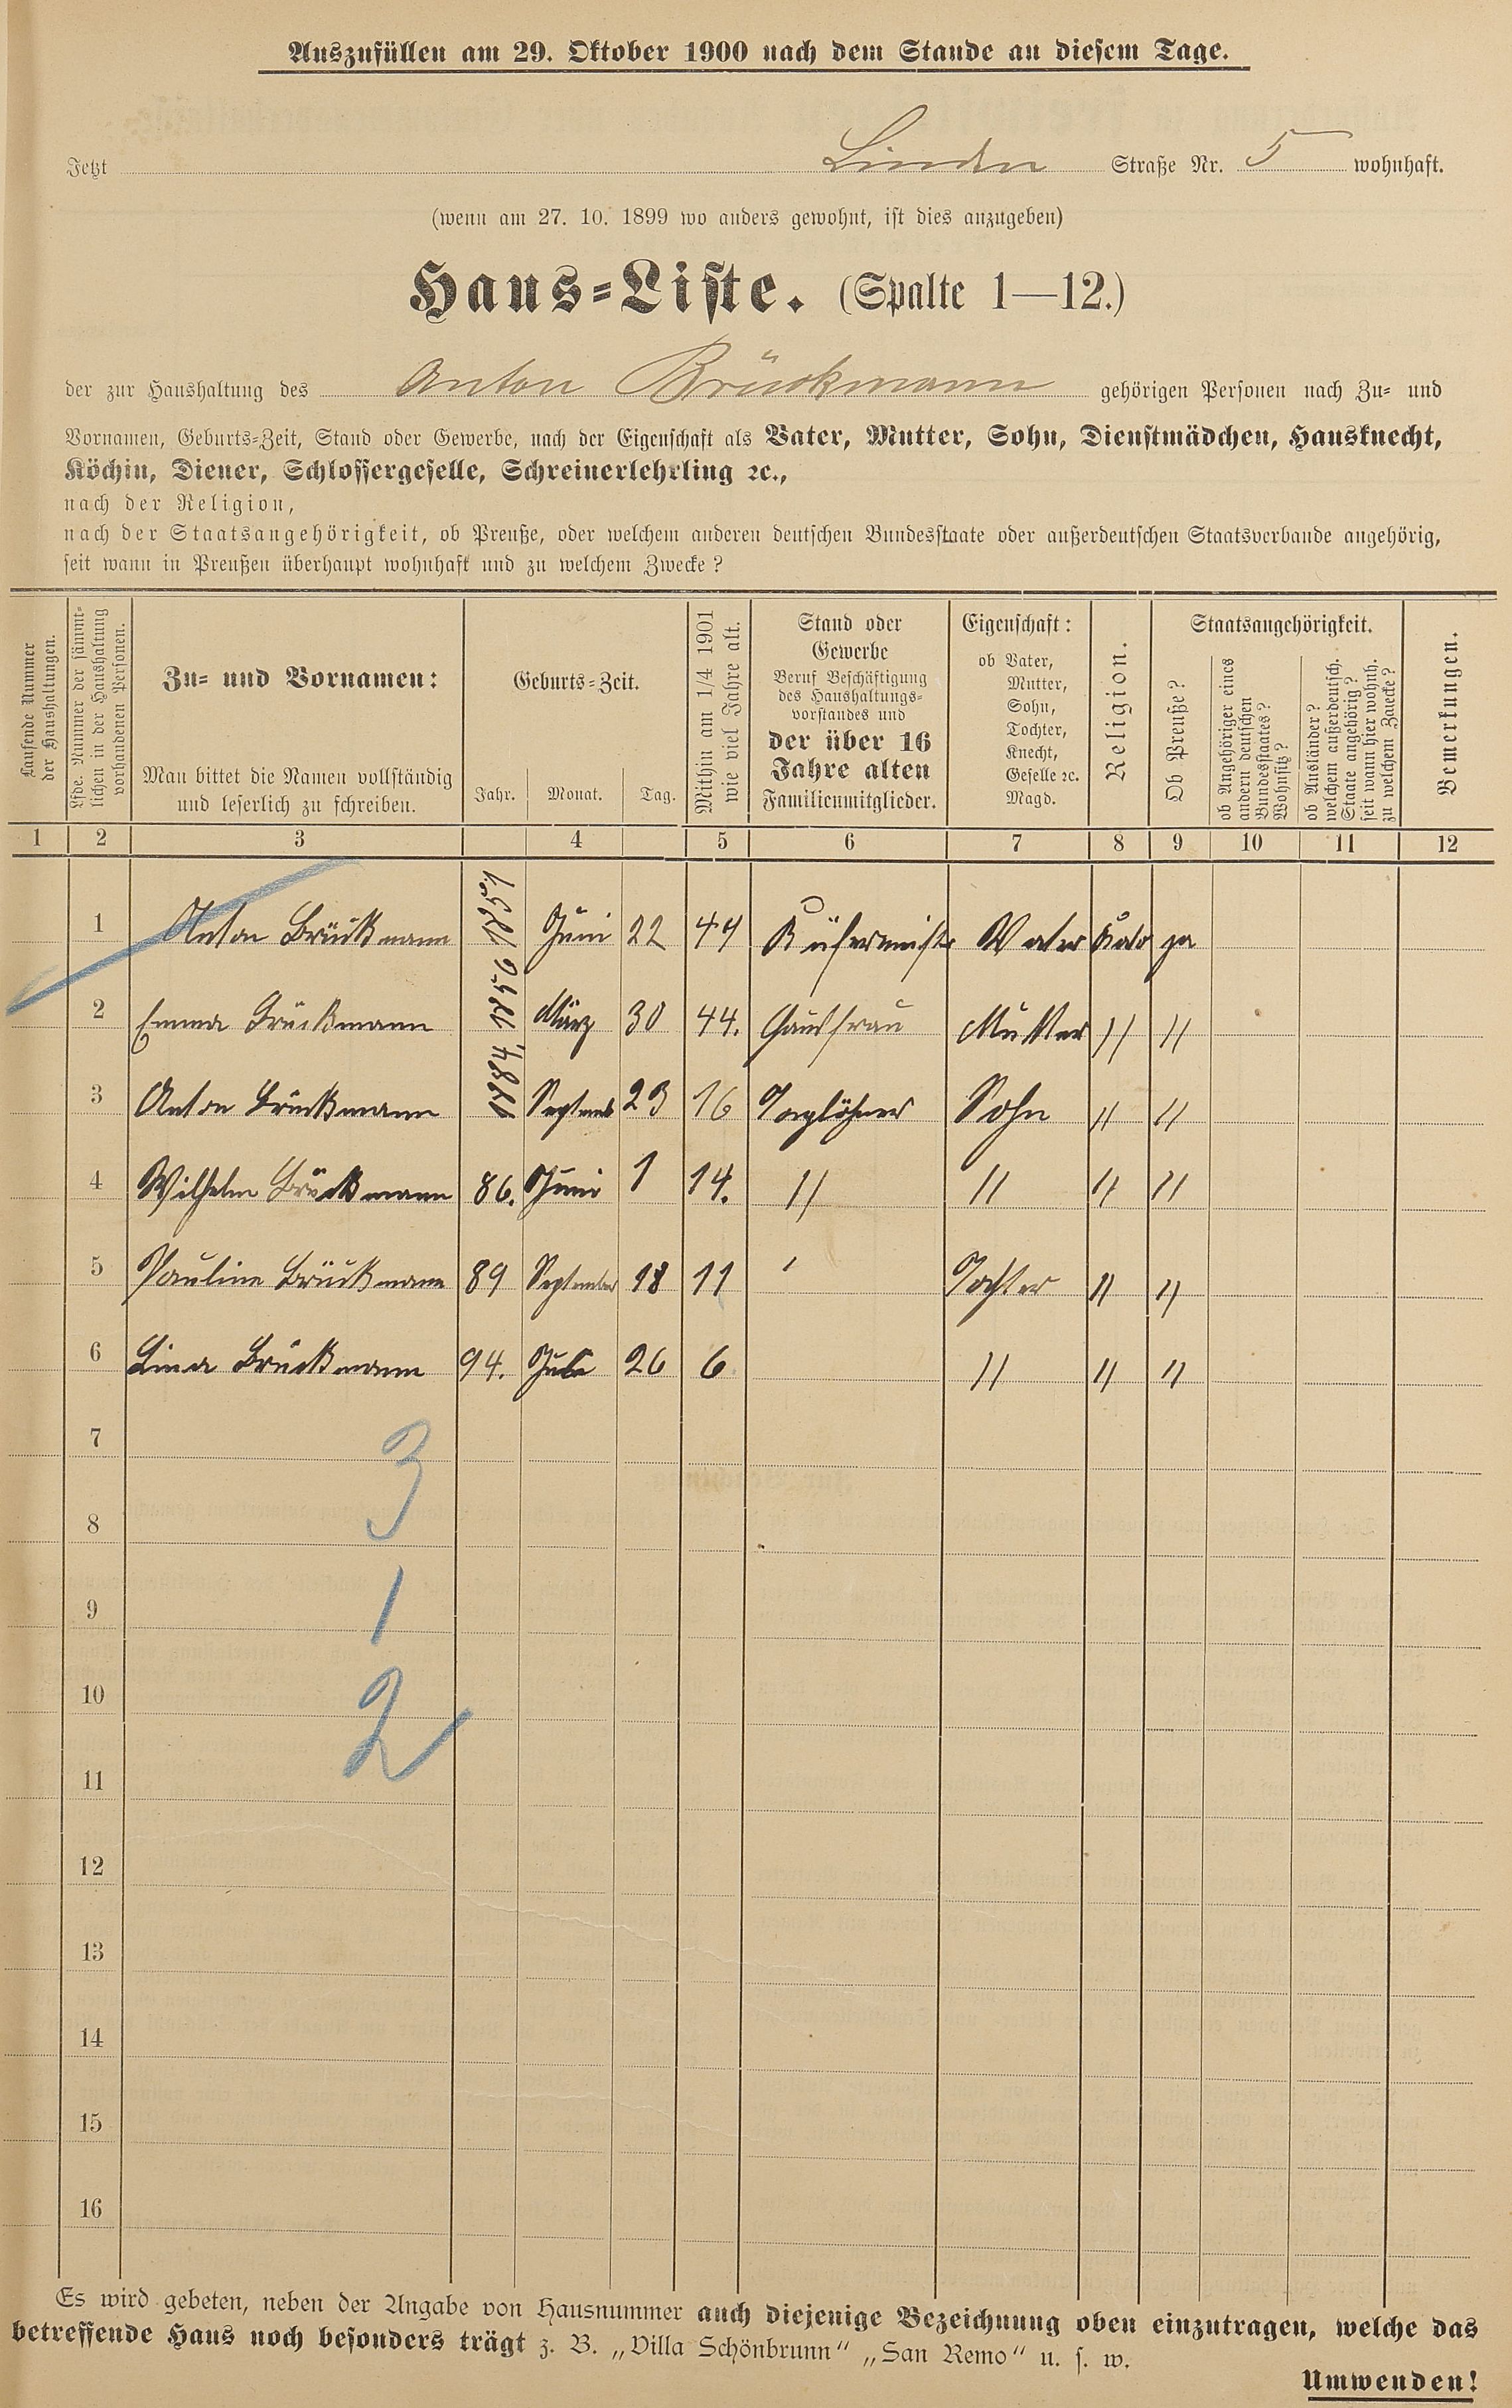 Auszufüllen am 29. Oktober 1900 nach dem Stande an diesem Tage.
Jetzt Linden Straße Nr. 5 wohnhaft.
(wenn am 27. 10. 1899 wo anders gewohnt, ist dies anzugeben)
Haus-Liste. (Spalte 1—12.)
der zur Haushaltung des Anton Brückmann gehörigen Personen nach Zu- und
Vornamen, Geburts-Zeit, Stand oder Gewerbe, nach der Eigenschaft als Vater, Mutter, Sohn, Dienstmädchen, Hausknecht,
Köchin, Diener, Schlossergeselle, Schreinerlehrling ꝛc.,
nach der Religion,
nach der Staatsangehörigkeit, ob Preuße, oder welchem anderen deutschen Bundesstaate oder außerdeutschen Staatsverbande angehörig,
seit wann in Preußen überhaupt wohnhaft und zu welchem Zwecke?
Laufende Nummer
der Haushaltungen.
Lfde. Nummer der sämmt-
lichen in der Haushaltung
vorhandenen Personen.
Zu- und Vornamen:
Man bittet die Namen vollständig
und leserlich zu schreiben.
Geburts-Zeit.
Jahr. Monat. Tag.
Mithin am 1/4 1901
wie viel Jahre alt.
Stand oder
Gewerbe
Beruf Beschäftigung
des Haushaltungs-
vorstandes und
der über 16
Jahre alten
Familienmitglieder.
Eigenschaft:
ob Vater,
Mutter,
Sohn,
Tochter,
Knecht,
Geselle ꝛc.
Magd.
Religion.
Staatsangehörigkeit.
Ob Preuße?
ob Angehöriger eines
andern deutschen
Bundesstaates?
Wohnsitz?
ob Ausländer?
welchem außerdeutsch.
Staate angehörig?
seit wann hier wohnh.
zu welchem Zwecke?
Bemerkungen.
1 2 3 4 5 6 7 8 9 10 11 12
1 Anton Brückmann 1851 Juni 22 49 Küfermeister Vater Kato ja
2 Emma Brückmann 1856 März 30 44. Hausfrau Mutter " "
3 Anton Brückmann 1884. Septemb 23 16 Taglöhner Sohn " "
4 Wilhelm Brückmann 86. Juni 1 14. " " " "
5 Pauline Brückmann 89 September 18 11 ' Tochter " "
6 Lina Brückmann 94. Juli 26 6 " " "
7
3
8
9
1
10
2
11
12
13
14
15
16
Es wird gebeten, neben der Angabe von Hausnummer auch diejenige Bezeichnung oben einzutragen, welche das
betreffende Haus noch besonders trägt z. B. „Villa Schönbrunn" „San Remo" u. s. w.
Umwenden!